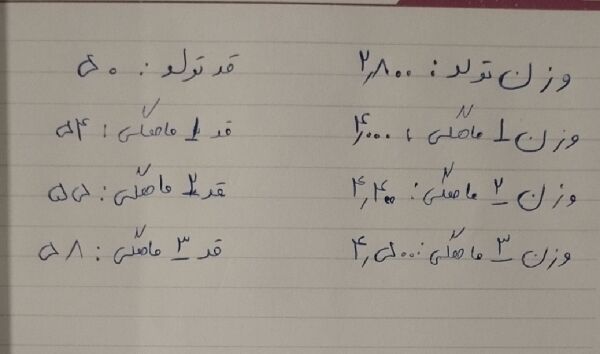 وزن تولد: ۲٫۸۰۰ قد تولد: ۵۰
وزن ۱ ماهگی: ۴٫۰۰۰ قد ۱ ماهگی: ۵۴
وزن ۲ ماهگی: ۴٫۴۰۰ قد ۲ ماهگی: ۵۵
وزن ۳ ماهگی: ۴٫۵۰۰ قد ۳ ماهگی: ۵۸